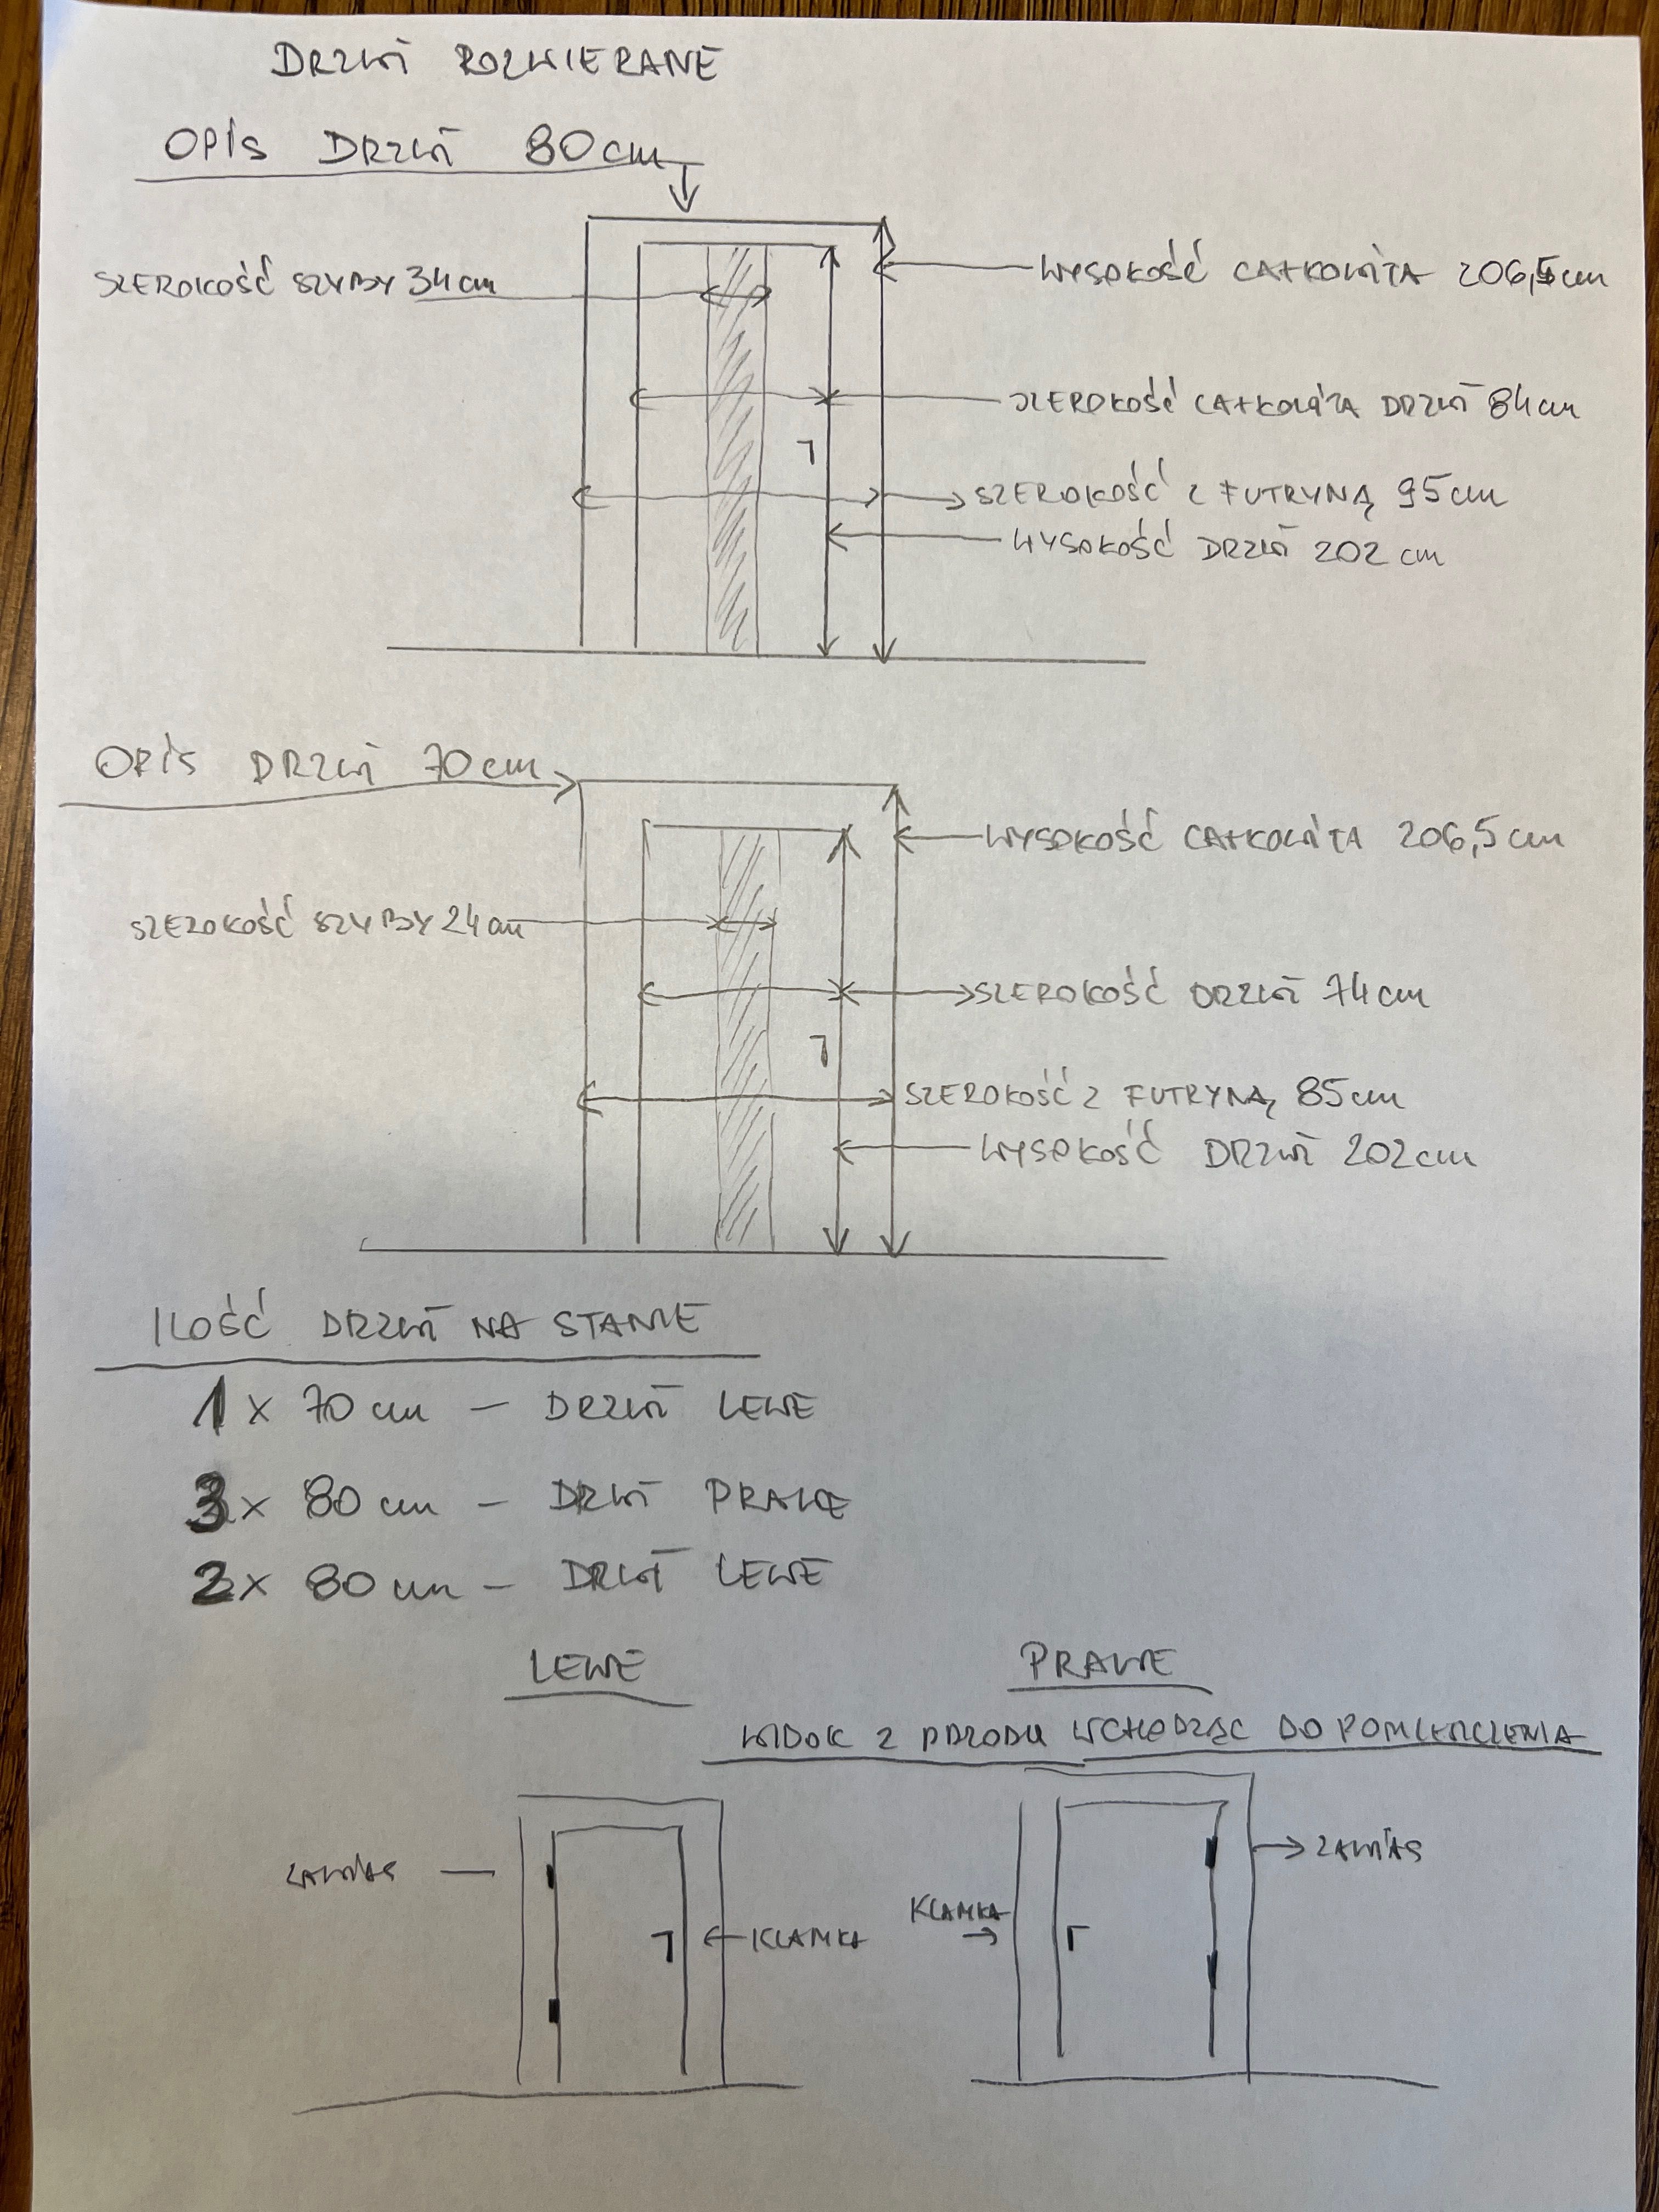 DRZWI ROZWIERANE
OPIS DRZWI 80cm
SZEROKOŚĆ SZYBY 34cm
WYSOKOŚĆ CAŁKOWITA 206,5cm
SZEROKOŚĆ CAŁKOWITA DRZWI 84cm
SZEROKOŚĆ Z FUTRYNĄ 95cm
WYSOKOŚĆ DRZWI 202 cm
OPIS DRZWI 70cm
WYSOKOŚĆ CAŁKOWITA 206,5cm
SZEROKOŚĆ SZYBY 24cm
SZEROKOŚĆ DRZWI 74cm
SZEROKOŚĆ Z FUTRYNĄ 85cm
WYSOKOŚĆ DRZWI 202cm
ILOŚĆ DRZWI NA STANIE
1x 70cm – DRZWI LEWE
3x 80cm – DRWI PRAWE
2x 80cm – DRWI LEWE
LEWE
PRAWE
WIDOK Z PRZODU WCHODZĄC DO POMIESZCZENIA
ZAWIAS
KLAMKA
KLAMKA
ZAWIAS